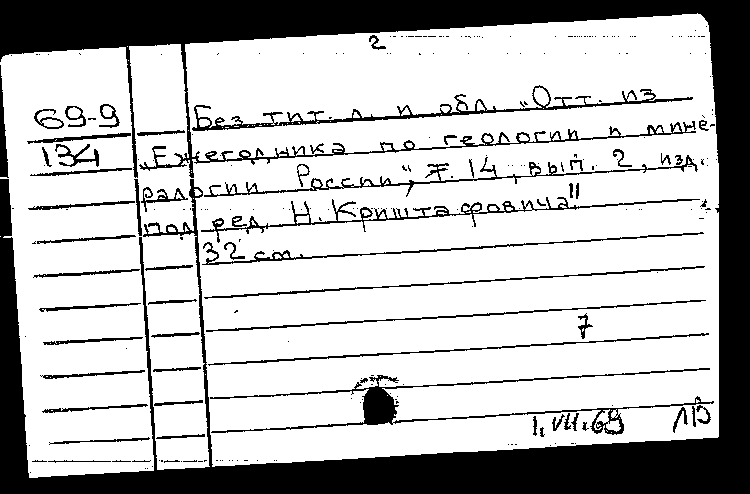 2
69-9 Без тит. л. и обл. „Отт. из
134 „Ежегодника по геологии и мине-
ралогии России”, т. 14, вып. 2, изд.
под ред. Н. Криштафовича".
32 см.
7
1.VII.69